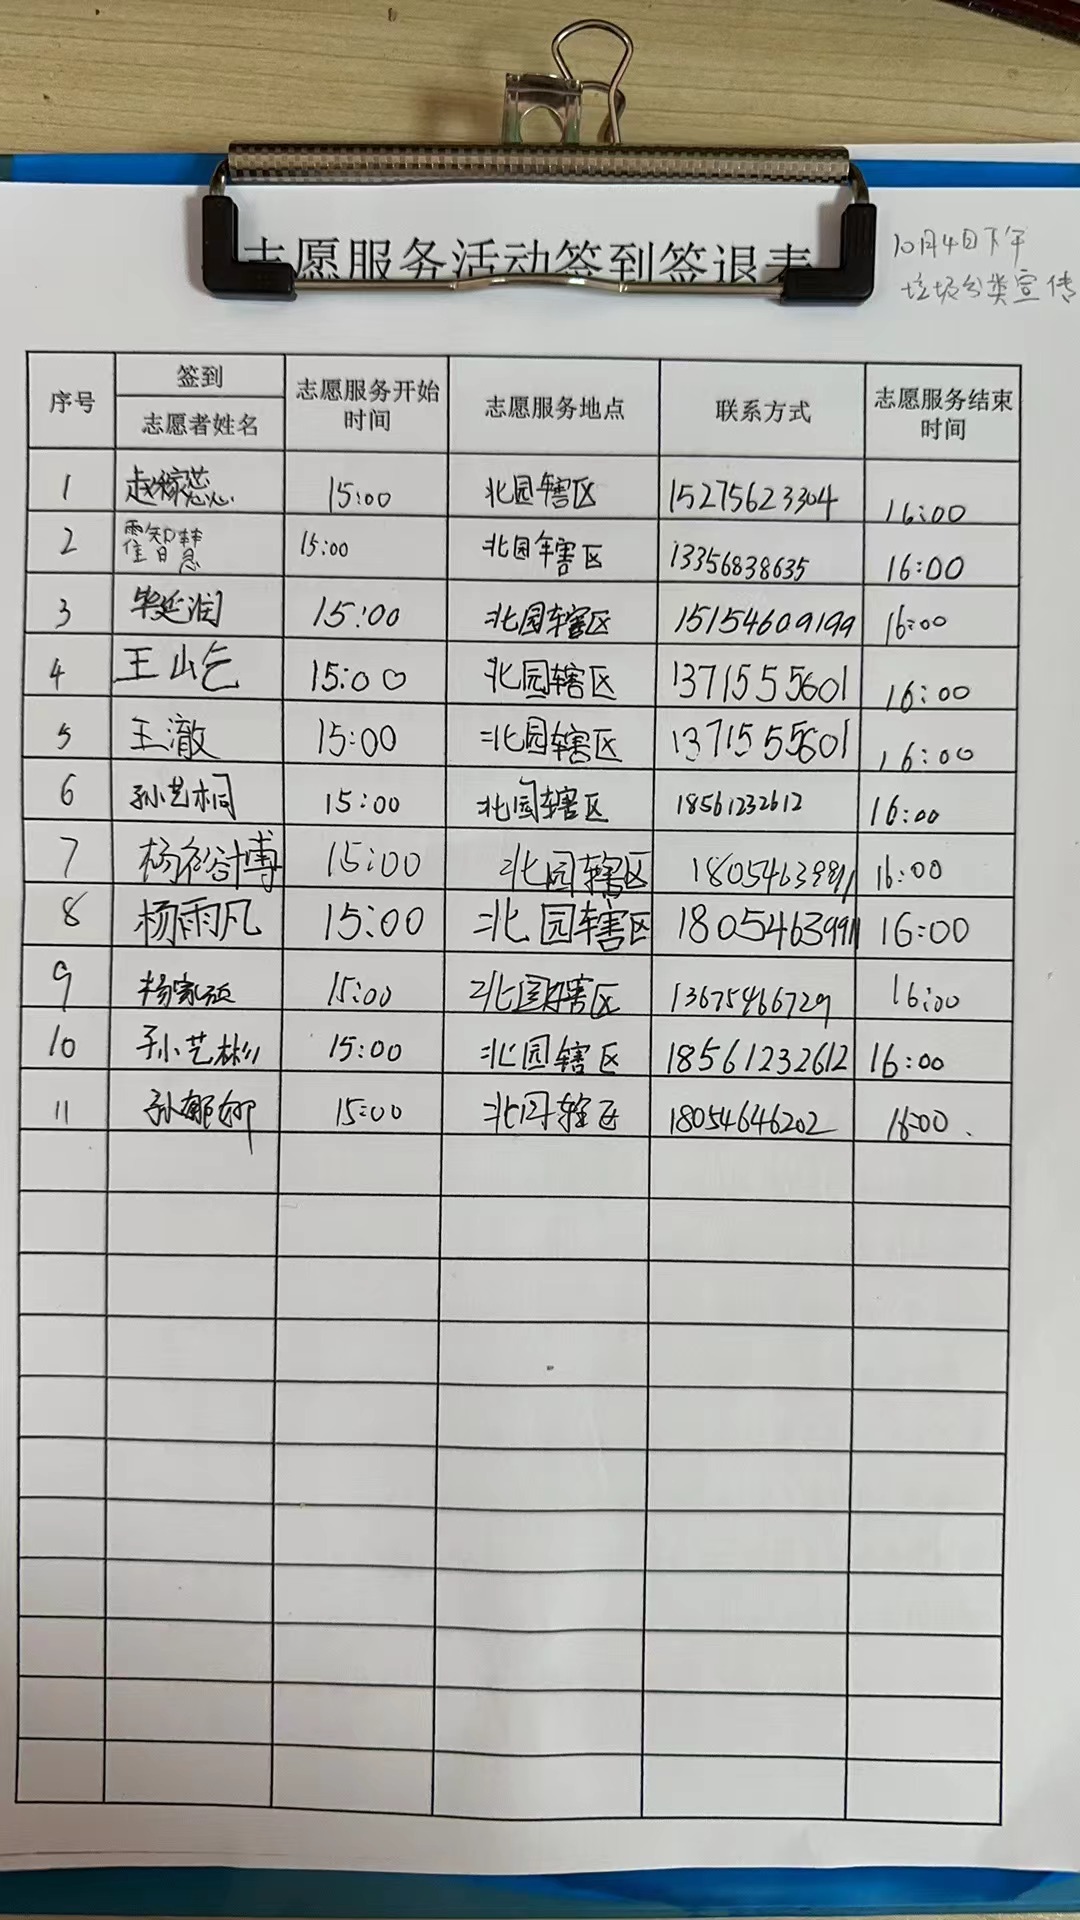 志愿服务活动签到签退表
10月4日下午
垃圾分类宣传
序号 签到 志愿者姓名 志愿服务开始时间 志愿服务地点 联系方式 志愿服务结束时间
1 赵稼蕊 15:00 北园辖区 15275623304 16:00
2 霍智慧 15:00 北园辖区 13356838635 16:00
3 毕延润 15:00 北园辖区 15154609199 16:00
4 王山乞 15:00 北园辖区 13715555601 16:00
5 王澈 15:00 北园辖区 13715555601 16:00
6 孙艺桐 15:00 北园辖区 18561232612 16:00
7 杨裕博 15:00 北园辖区 16:00
8 杨雨凡 15:00 北园辖区 16:00
9 杨家 15:00 北园辖区 13675466729 16:00
10 孙艺彬 15:00 北园辖区 18561232612 16:00
11 孙娜娜 15:00 北园辖区 18054646202 16:00